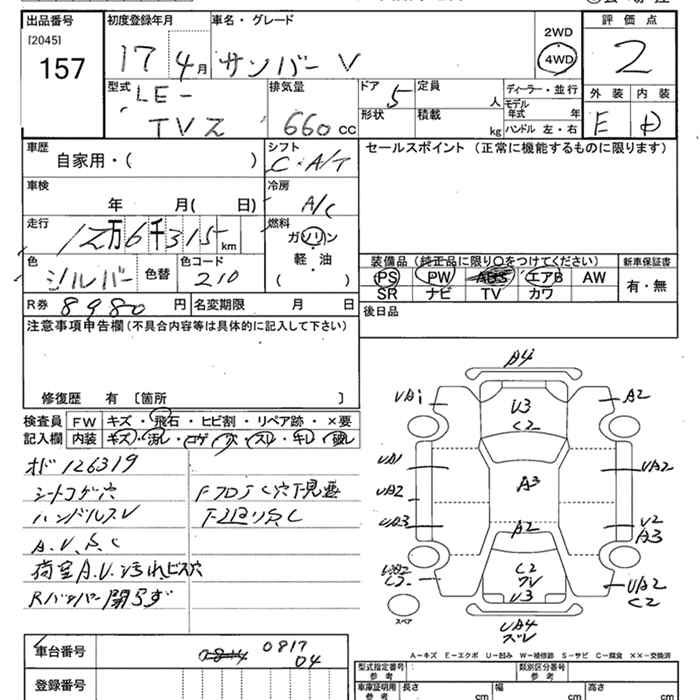 出品番号
[2045]
157
初度登録年月
17 4月
車名・グレード
サンバー V
2WD
4WD
評価点
2
型式
LE-
TVZ
排気量
660 cc
ドア
5
形状
定員
人
積載
kg
ディーラー・並行
モデル
年式 年
ハンドル 左・右
外装 内装
E D
車歴
自家用・( )
シフト
C・A/T
セールスポイント (正常に機能するものに限ります)
車検
年 月( 日)
冷房
A/C
走行
12万6千315km
燃料
ガソリン
軽・油
( )
色
シルバー
色替
色コード
210
装備品 (純正品に限り○をつけてください)
PS PW ABS エアB AW
SR ナビ TV カワ
新車保証書
有・無
R券 8980 円
名変期限 月 日
後日品
注意事項申告欄(不具合内容等は具体的に記入して下さい)
修復歴 有 [箇所 ]
検査員
記入欄
FW キズ・飛石・ヒビ割・リペア跡・×要
内装 キズ・汚レ・コゲ・穴・スレ・キレ・破レ
オド126319
シートコゲ穴
ハンドルスレ
A.U.S.C
荷室A.U.汚れビス穴
Rバンパー開らず
A4
UA1
A2
U3
C2
UA1
UA2
UA2
A3
UA3
A2
U2
A3
C2
C2
U3
UA2
C2
スペア
UA4
ズレ
A-キズ E-エクボ U-凹み W-補修跡 S-サビ C-腐食 ××-交換済
車台番号
0817
04
登録番号
型式指定番号
参考
類別区分番号
参考
車庫証明用
参考
長さ cm
幅 cm
高さ cm